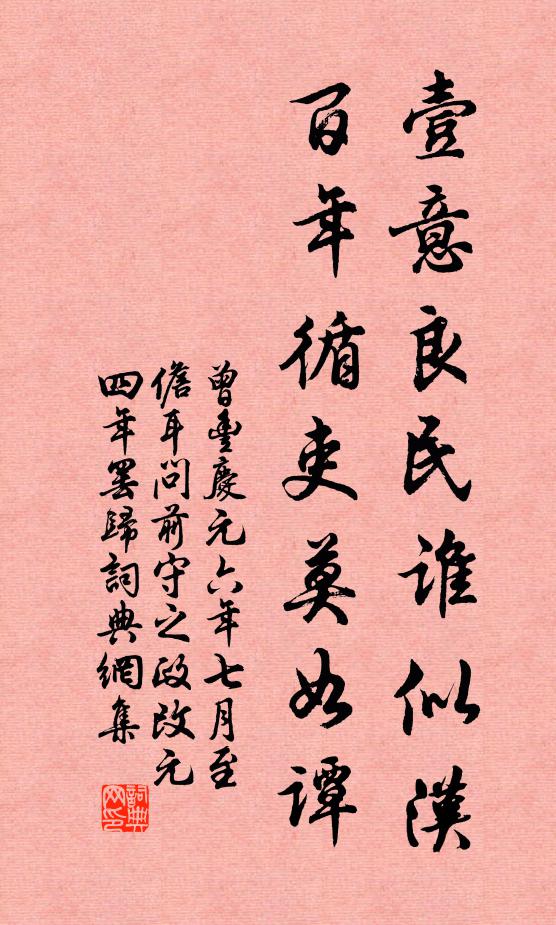 壹意良民誰似漢
百年循吏莫如譚
曾豐慶元六年七月至
儋耳問前守之政改元
四年罷歸詞典網集
詞典網印